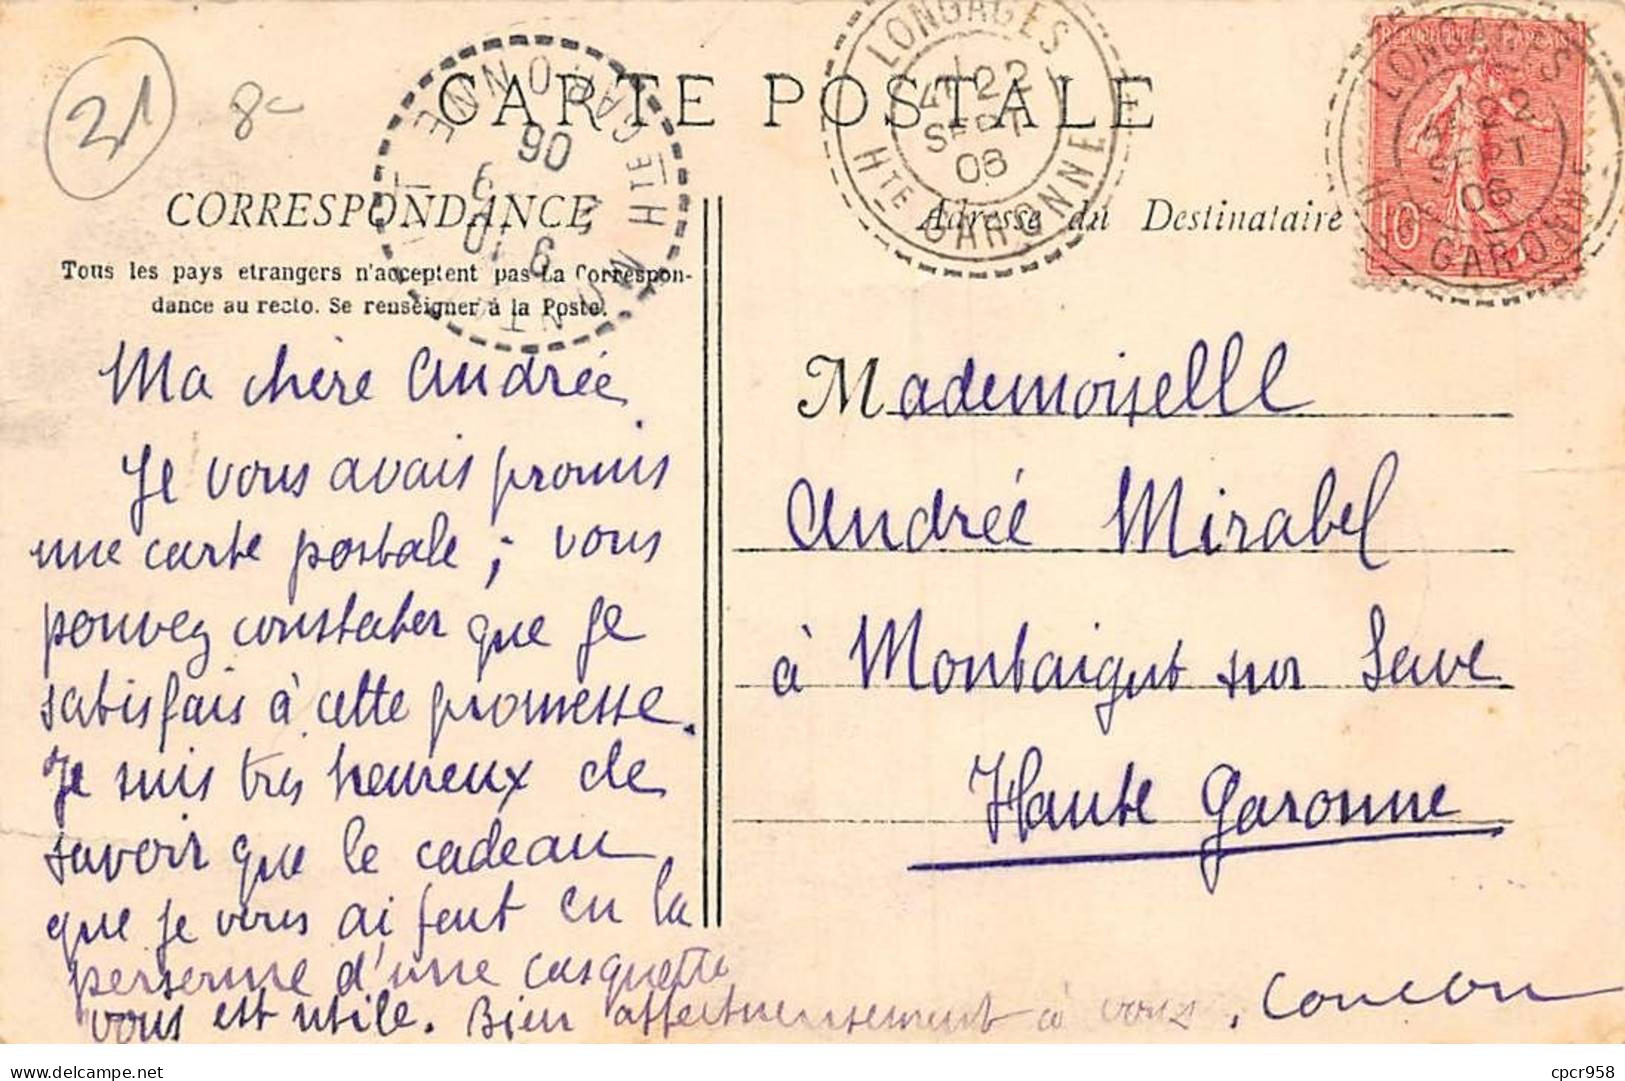 21
8c
CARTE POSTALE
CORRESPONDANCE
Tous les pays etrangers n'acceptent pas La Correspon-
dance au recto. Se renseigner à la Poste.
Ma chère Andrée
Je vous avais promis
une carte postale ; vous
pouvez constater que je
satisfais à cette promesse.
Je suis très heureux de
savoir que le cadeau
que je vous ai fait en la
personne d'une casquette
vous est utile. Bien affectueusement à vous. Coucou
Adresse du Destinataire
Mademoiselle
Andrée Mirabel
à Montaigut sur Save
Haute Garonne
LONGAGES
22
SEPT
06
HTE GARONNE
RÉPUBLIQUE FRANÇAISE
10c
LONGAGES
22
SEPT
06
HTE GARONNE
HTE GARONNE
06
cpcr958